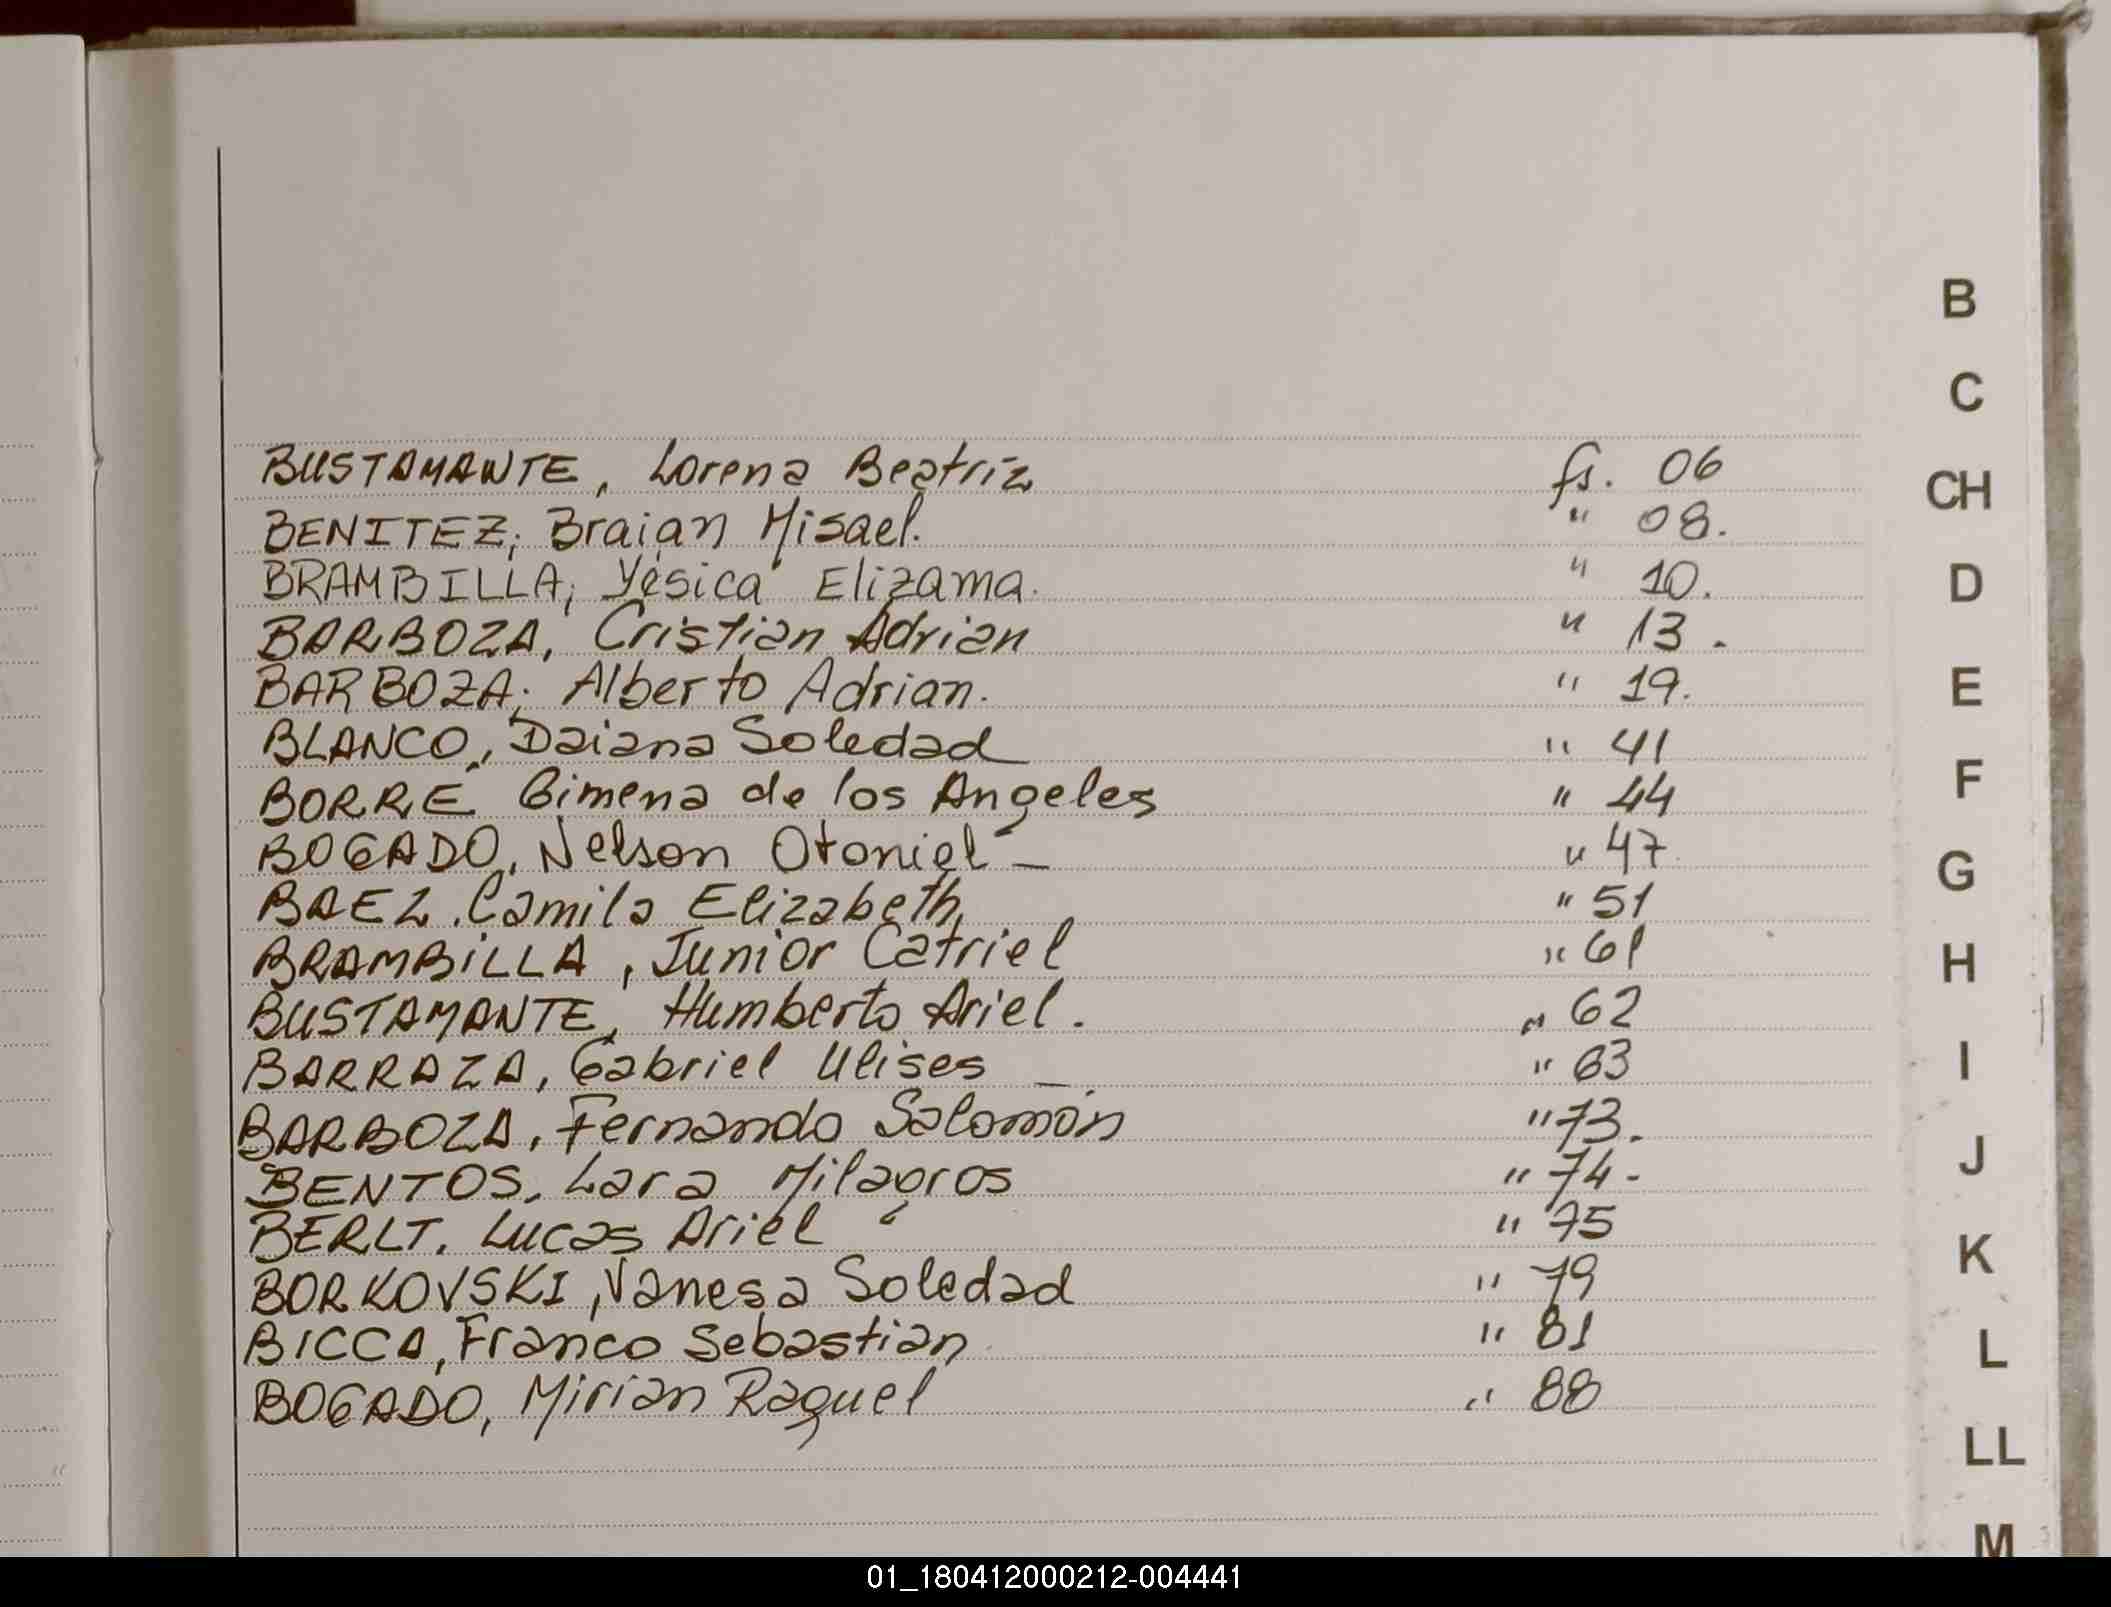 BUSTAMANTE, Lorena Beatriz fs. 06
BENITEZ; Braian Misael. " 08.
BRAMBILLA; Yésica Elizama. " 10.
BARBOZA, Cristian Adrian " 13.
BARBOZA; Alberto Adrian. " 19.
BLANCO, Daiana Soledad " 41
BORRÉ Gimena de los Angeles " 44
BOGADO, Nelson Otoniel - " 47
BAEZ, Camila Elizabeth " 51
BRAMBILLA, Junior Catriel " 61
BUSTAMANTE, Humberto Ariel. " 62
BARRAZA, Gabriel Ulises - " 63
BARBOZA, Fernando Salomón " 73.
BENTOS, Lara Milagros " 74-
BERLT, Lucas Ariel " 75
BORKOVSKI, Vanesa Soledad " 79
BICCA, Franco Sebastian " 81
BOGADO, Mirian Raquel " 88
B
C
CH
D
E
F
G
H
I
J
K
L
LL
M
01_180412000212-004441